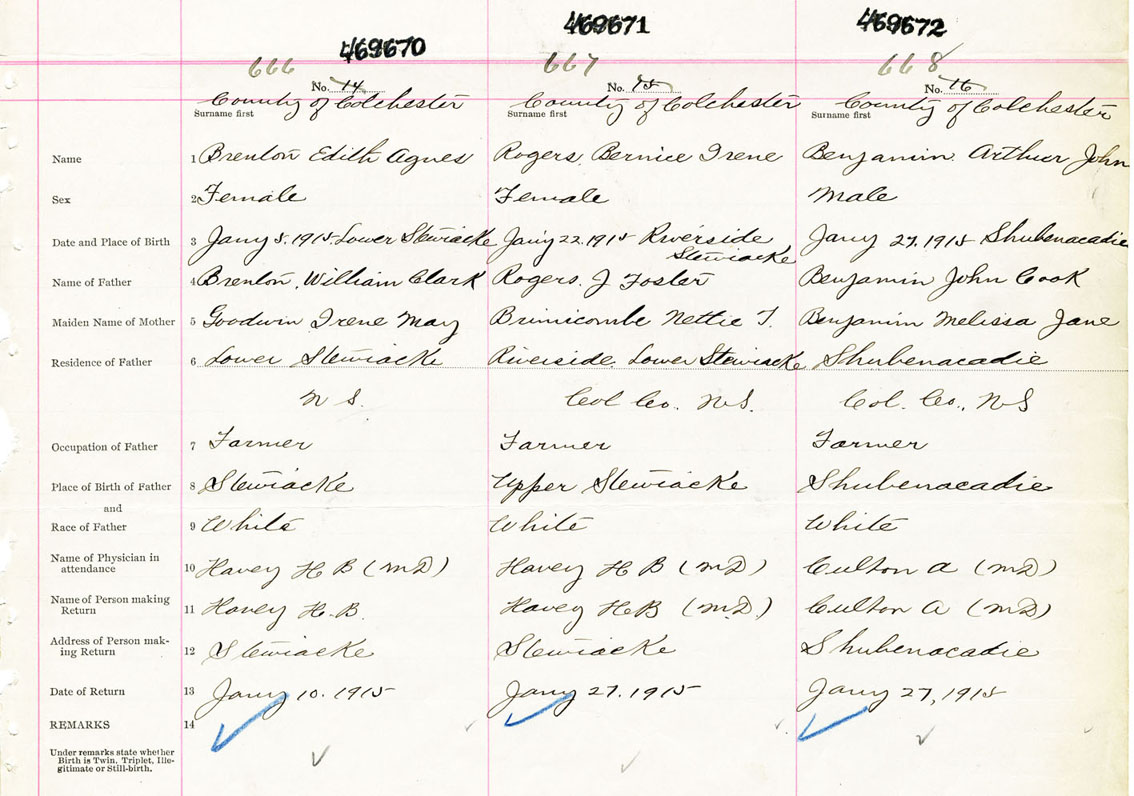 469670 469671 469672
666 667 668
No. 14 No. 15 No. 16
County of Colchester County of Colchester County of Colchester
Surname first Surname first Surname first
Name 1 Brenton Edith Agnes Rogers, Bernice Irene Benjamin Arthur John
Sex 2 Female Female Male
Date and Place of Birth 3 Jany 5. 1915. Lower Stewiacke Jany 22. 1915 Riverside Jany 27. 1915 Shubenacadie
Stewiacke
Name of Father 4 Brenton, William Clark Rogers. J Foster Benjamin John Cook
Maiden Name of Mother 5 Goodwin Irene May Brimicombe Nettie T. Benjamin Melissa Jane
Residence of Father 6 Lower Stewiacke Riverside, Lower Stewiacke Shubenacadie
N S. Col Co., N.S. Col. Co., N S
Occupation of Father 7 Farmer Farmer Farmer
Place of Birth of Father 8 Stewiacke Upper Stewiacke Shubenacadie
and
Race of Father 9 White White White
Name of Physician in
attendance 10 Havey H B (M.D) Havey H B (M.D) Culton A (M.D)
Name of Person making
Return 11 Havey H. B. Havey H B (M.D.) Culton A (M.D)
Address of Person mak-
ing Return 12 Stewiacke Stewiacke Shubenacadie
Date of Return 13 Jany 10. 1915 Jany 27. 1915 Jany 27, 1915
REMARKS 14
Under remarks state whether
Birth is Twin, Triplet, Ille-
gitimate or Still-birth.